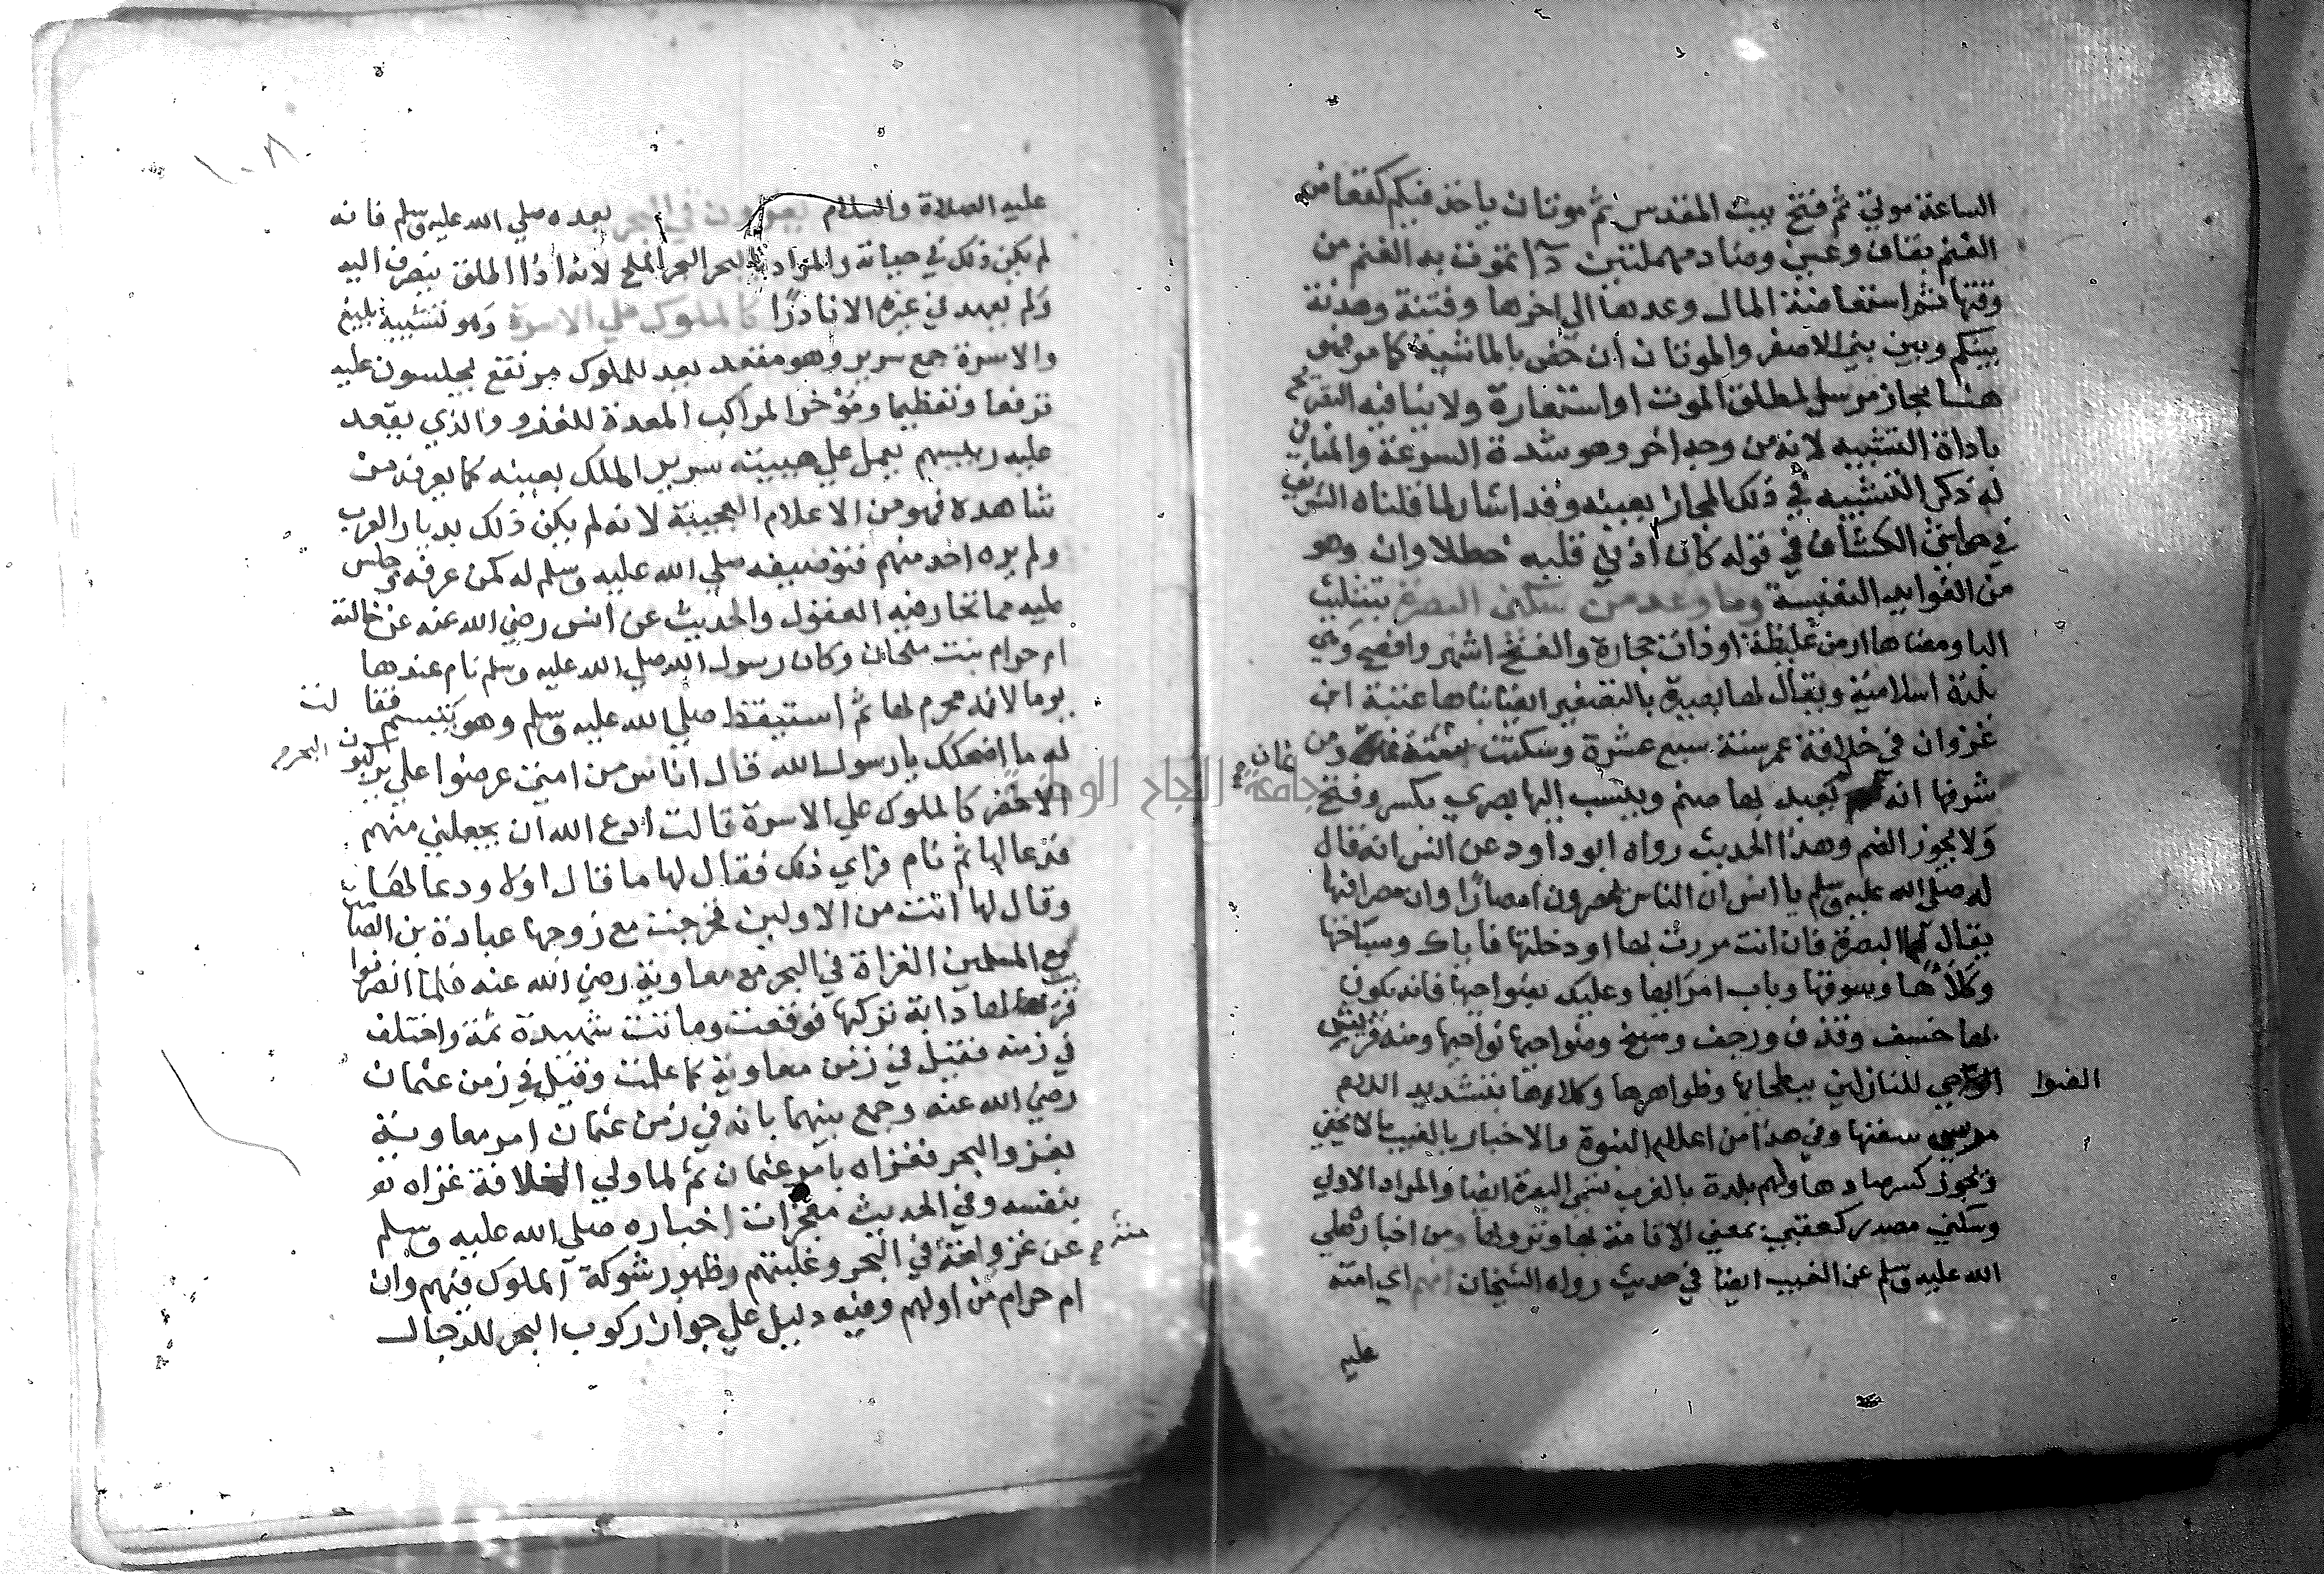 الساعة موتي ثم فتح بيت المقدس ثم موتان ياخذ فيكم كقعاص
الغنم بقاف وعين وصاد مهملتين دآ تموت به الغنم من
وقتها ثم استفاضة المال وعدها الي اخرها وفتنة وهدنة
بينكم وبين بني الاصفر والموتان ان خص بالماشية كما مر فهو
هنا مجاز مرسل لمطلق الموت او استعارة ولا ينافيه التصريح
باداة التشبيه لانه من وجه اخر وهو شدة السرعة والمنافي
له ذكر التشبيه في ذلك المجاز بعينه وقد اشار لما قلناه الشريف
في حواشي الكشاف في قوله كان اذني قلبه خطلا وان وهو
من الفوايد النفيسة وما وعد من سكني البصرة بتثليث
البا ومعناها ارض غليظة او ذات حجارة والفتح اشهر وافصح وهي
بلدة اسلامية ويقال لها بصيرة بالتصغير ايضا بناها عتبة ابن
غزوان في خلافة عمر سنة سبع عشرة وسكنت سنة ثمان ومن
شرفها انه لم يعبد بها صنم وينسب اليها بصري بكسر وفتح
ولا يجوز الضم وهذا الحديث رواه ابو داود عن انس انه قال
له صلي الله عليه وسلم يا انس ان الناس يمصرون امصارًا وان مصرا منها
يقال لها البصرة فان انت مررت بها او دخلتها فاياك وسباخها
وكلاءها وسوقها وباب امرائها وعليك بضواحيها فانه يكون
بها خسف وقذف ورجف ومسخ وضواحيها نواحيها ومنه قريش
الضواحي للنازلين ببطحائها وظواهرها وكلاءها بتشديد اللام
مرسي سفنها وفي هذا من اعلام النبوة والاخبار بالغيب ما لا يخفي
ويجوز كسر صادها ولهم بلدة بالغرب تسمي البصرة ايضا والمراد الاولي
وسكني مصدر كعقبي بمعني الاقامة بها ونزولها ومن اخباره صلي
الله عليه وسلم عن الغيب ايضا في حديث رواه الشيخان انهم اي امته
عليه
١٠٨
عليه الصلاة والسلام يغزون في البحر بعده صلي الله عليه وسلم فانه
لم يكن ذلك في حياته والمراد بالبحر البحر الملح لانه اذا اطلق ينصرف اليه
ولم يعهد في غيره الا نادرًا كالملوك علي الاسرة وهو تشبيه بليغ
والاسرة جمع سرير وهو مقعد يعد للملوك مرتفع يجلسون عليه
ترفعا وتعظيما ومؤخر المراكب المعدة للغزو والذي يقعد
عليه رييسهم يعمل علي هيئة سرير الملك بعينه كما يعرفه من
شاهده فهو من الاعلام العجيبة لانه لم يكن ذلك بديار العرب
ولم يره احد منهم فتوصيفه صلي الله عليه وسلم له كمن عرفه وجلس
عليه مما تحار فيه العقول والحديث عن انس رضي الله عنه عن خالته
ام حرام بنت ملحان وكان رسول الله صلي الله عليه وسلم نام عندها
يوما لانه محرم لها ثم استيقظ صلي الله عليه وسلم وهو يتبسم فقالت
له ما اضحكك يا رسول الله قال اناس من امتي عرضوا علي يركبون البحر
الاخضر كالملوك علي الاسرة قالت ادع الله ان يجعلني منهم
فدعا لها ثم نام فراي ذلك فقال لها ما قال اولا ودعا لها
وقال لها انت من الاولين فخرجت مع زوجها عبادة بن الصامت
مع المسلمين الغزاة في البحر مع معاوية رضي الله عنه فلما انصرفوا
قربت لها دابة تركبها فوقعت وماتت شهيدة ثمة واختلف
في زمنه فقيل في زمن معاوية كما علمت وقيل في زمن عثمان
رضي الله عنه وجمع بينهما بانه في زمن عثمان امر معاوية
بغزو البحر فغزاه بامر عثمان ثم لما ولي الخلافة غزاه هو
بنفسه وفي الحديث معجزات اخباره صلي الله عليه وسلم
عن غزو امته في البحر وغلبتهم وظهور شوكة الملوك منهم وان
ام حرام من اولهم وفيه دليل علي جواز ركوب البحر للرجال
جامعة النجاح الوطنية